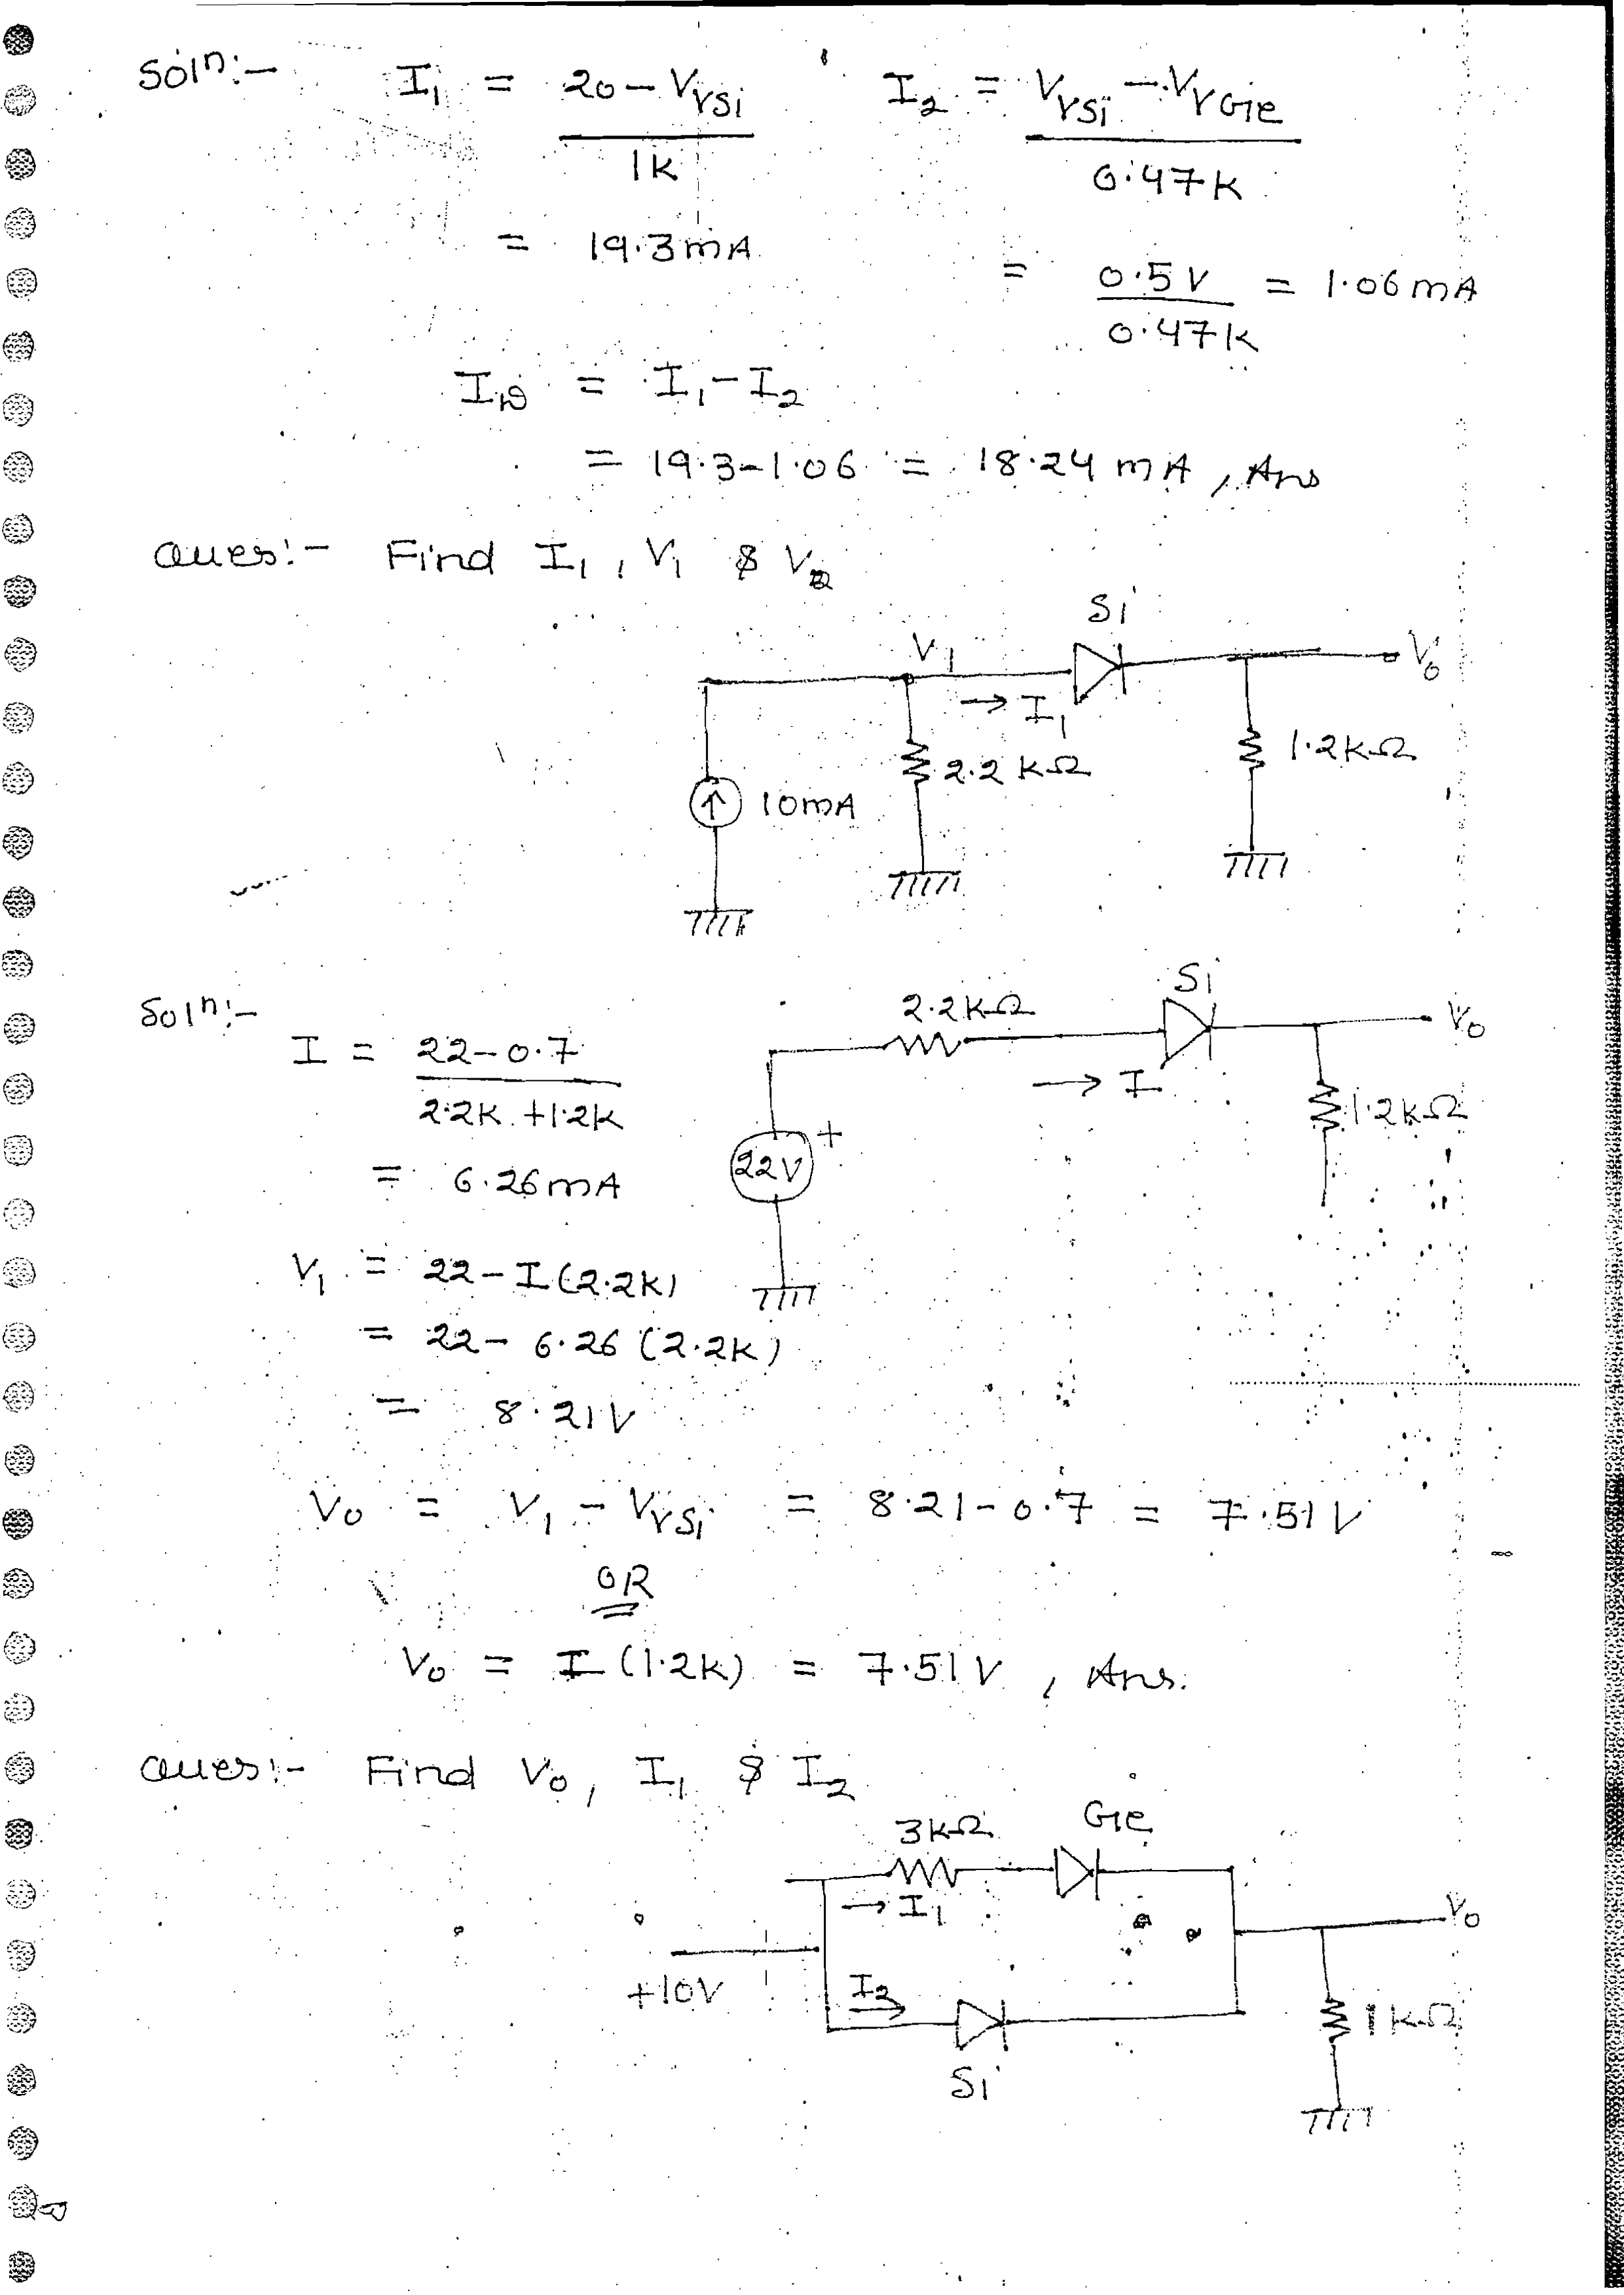 Soln:-   I1 = 20 - VγSi / 1K   I2 = VγSi - VγGe / 0.47K
= 19.3mA   = 0.5V / 0.47K = 1.06mA
ID = I1 - I2
= 19.3-1.06 = 18.24 mA, Ans
Ques:- Find I1, V1 & V0
Si
V1   V0
→ I1
2.2 kΩ   1.2kΩ
10mA
Soln:-   Si
2.2kΩ   V0
I = 22-0.7 / 2.2K + 1.2K
→ I   1.2kΩ
22V +
= 6.26mA
V1 = 22-I(2.2K)
= 22- 6.26 (2.2K)
= 8.21V
V0 = V1 - VγSi = 8.21-0.7 = 7.51V
OR
V0 = I (1.2K) = 7.51V, Ans.
Ques:- Find V0, I1 & I2
3kΩ   Ge
→ I1   V0
+10V   I2 →
1kΩ
Si